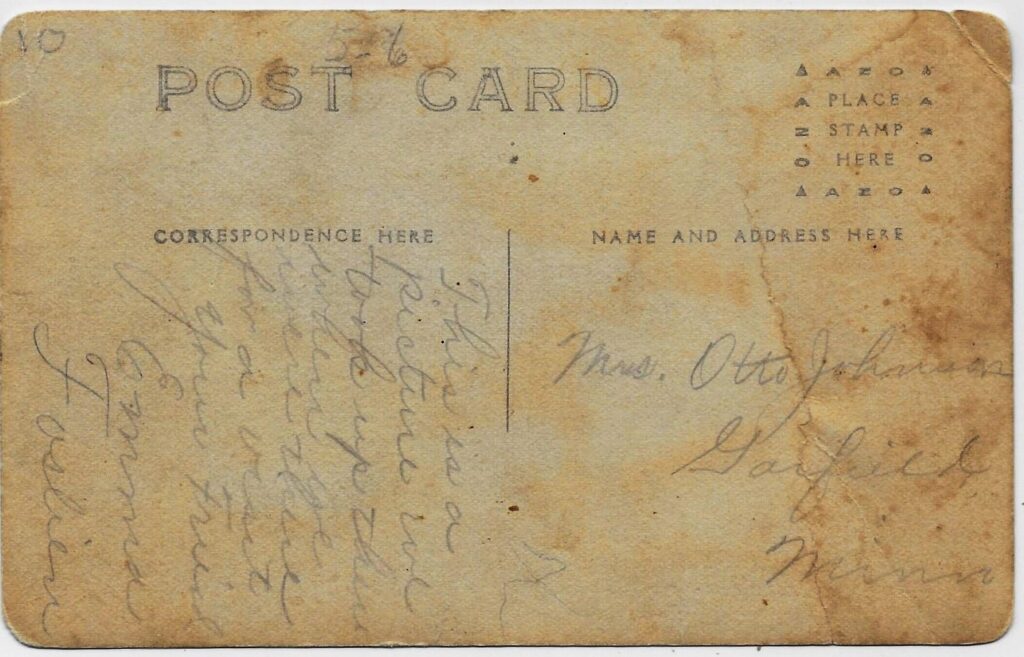 10
5-6
POST CARD
AZO
PLACE
STAMP
HERE
AZO
AZO
AZO
CORRESPONDENCE HERE
NAME AND ADDRESS HERE
This is a
picture we
took up thu
when we
were thue
for a visit
your Freid
Emma
T.
Foslien
Mrs. Otto Johnson
Garfield
Minn